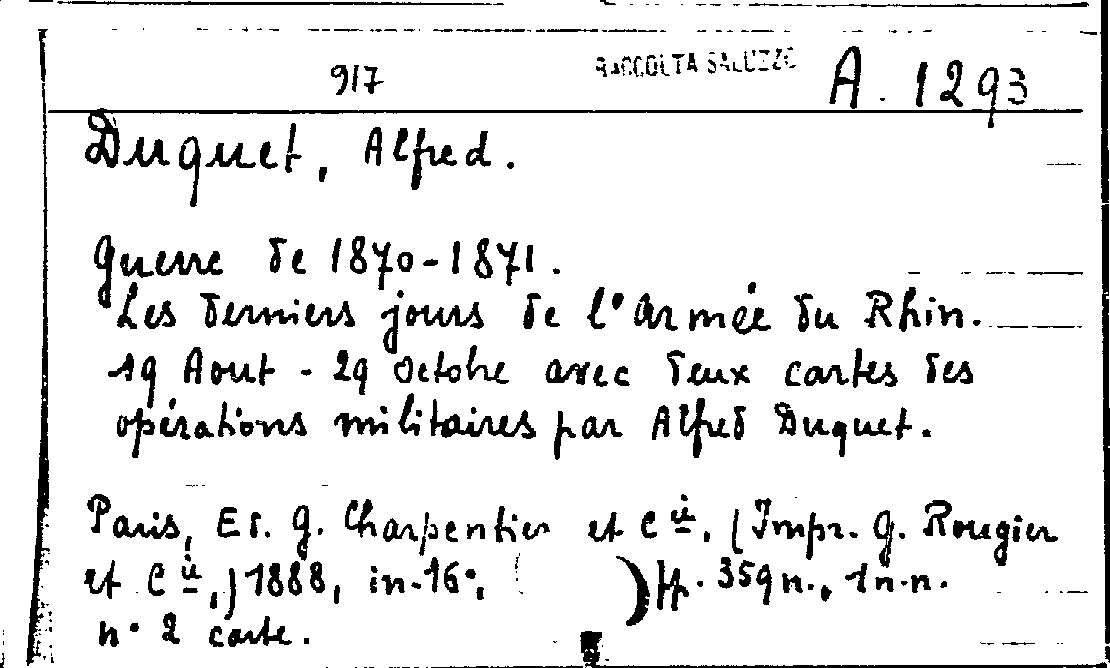 917 RACCOLTA SALUZZO A. 1293
Duquet, Alfred.
Guerre de 1870-1871.
Les derniers jours de l'Armée du Rhin.
19 Aout - 29 octobre avec deux cartes des
opérations militaires par Alfred Duquet.
Paris, Ed. G. Charpentier et Cie. (Impr. G. Rougier
et Cie,) 1888, in-16°, ( ) pp. 359 n., 1 n.n.
n° 2 carte.